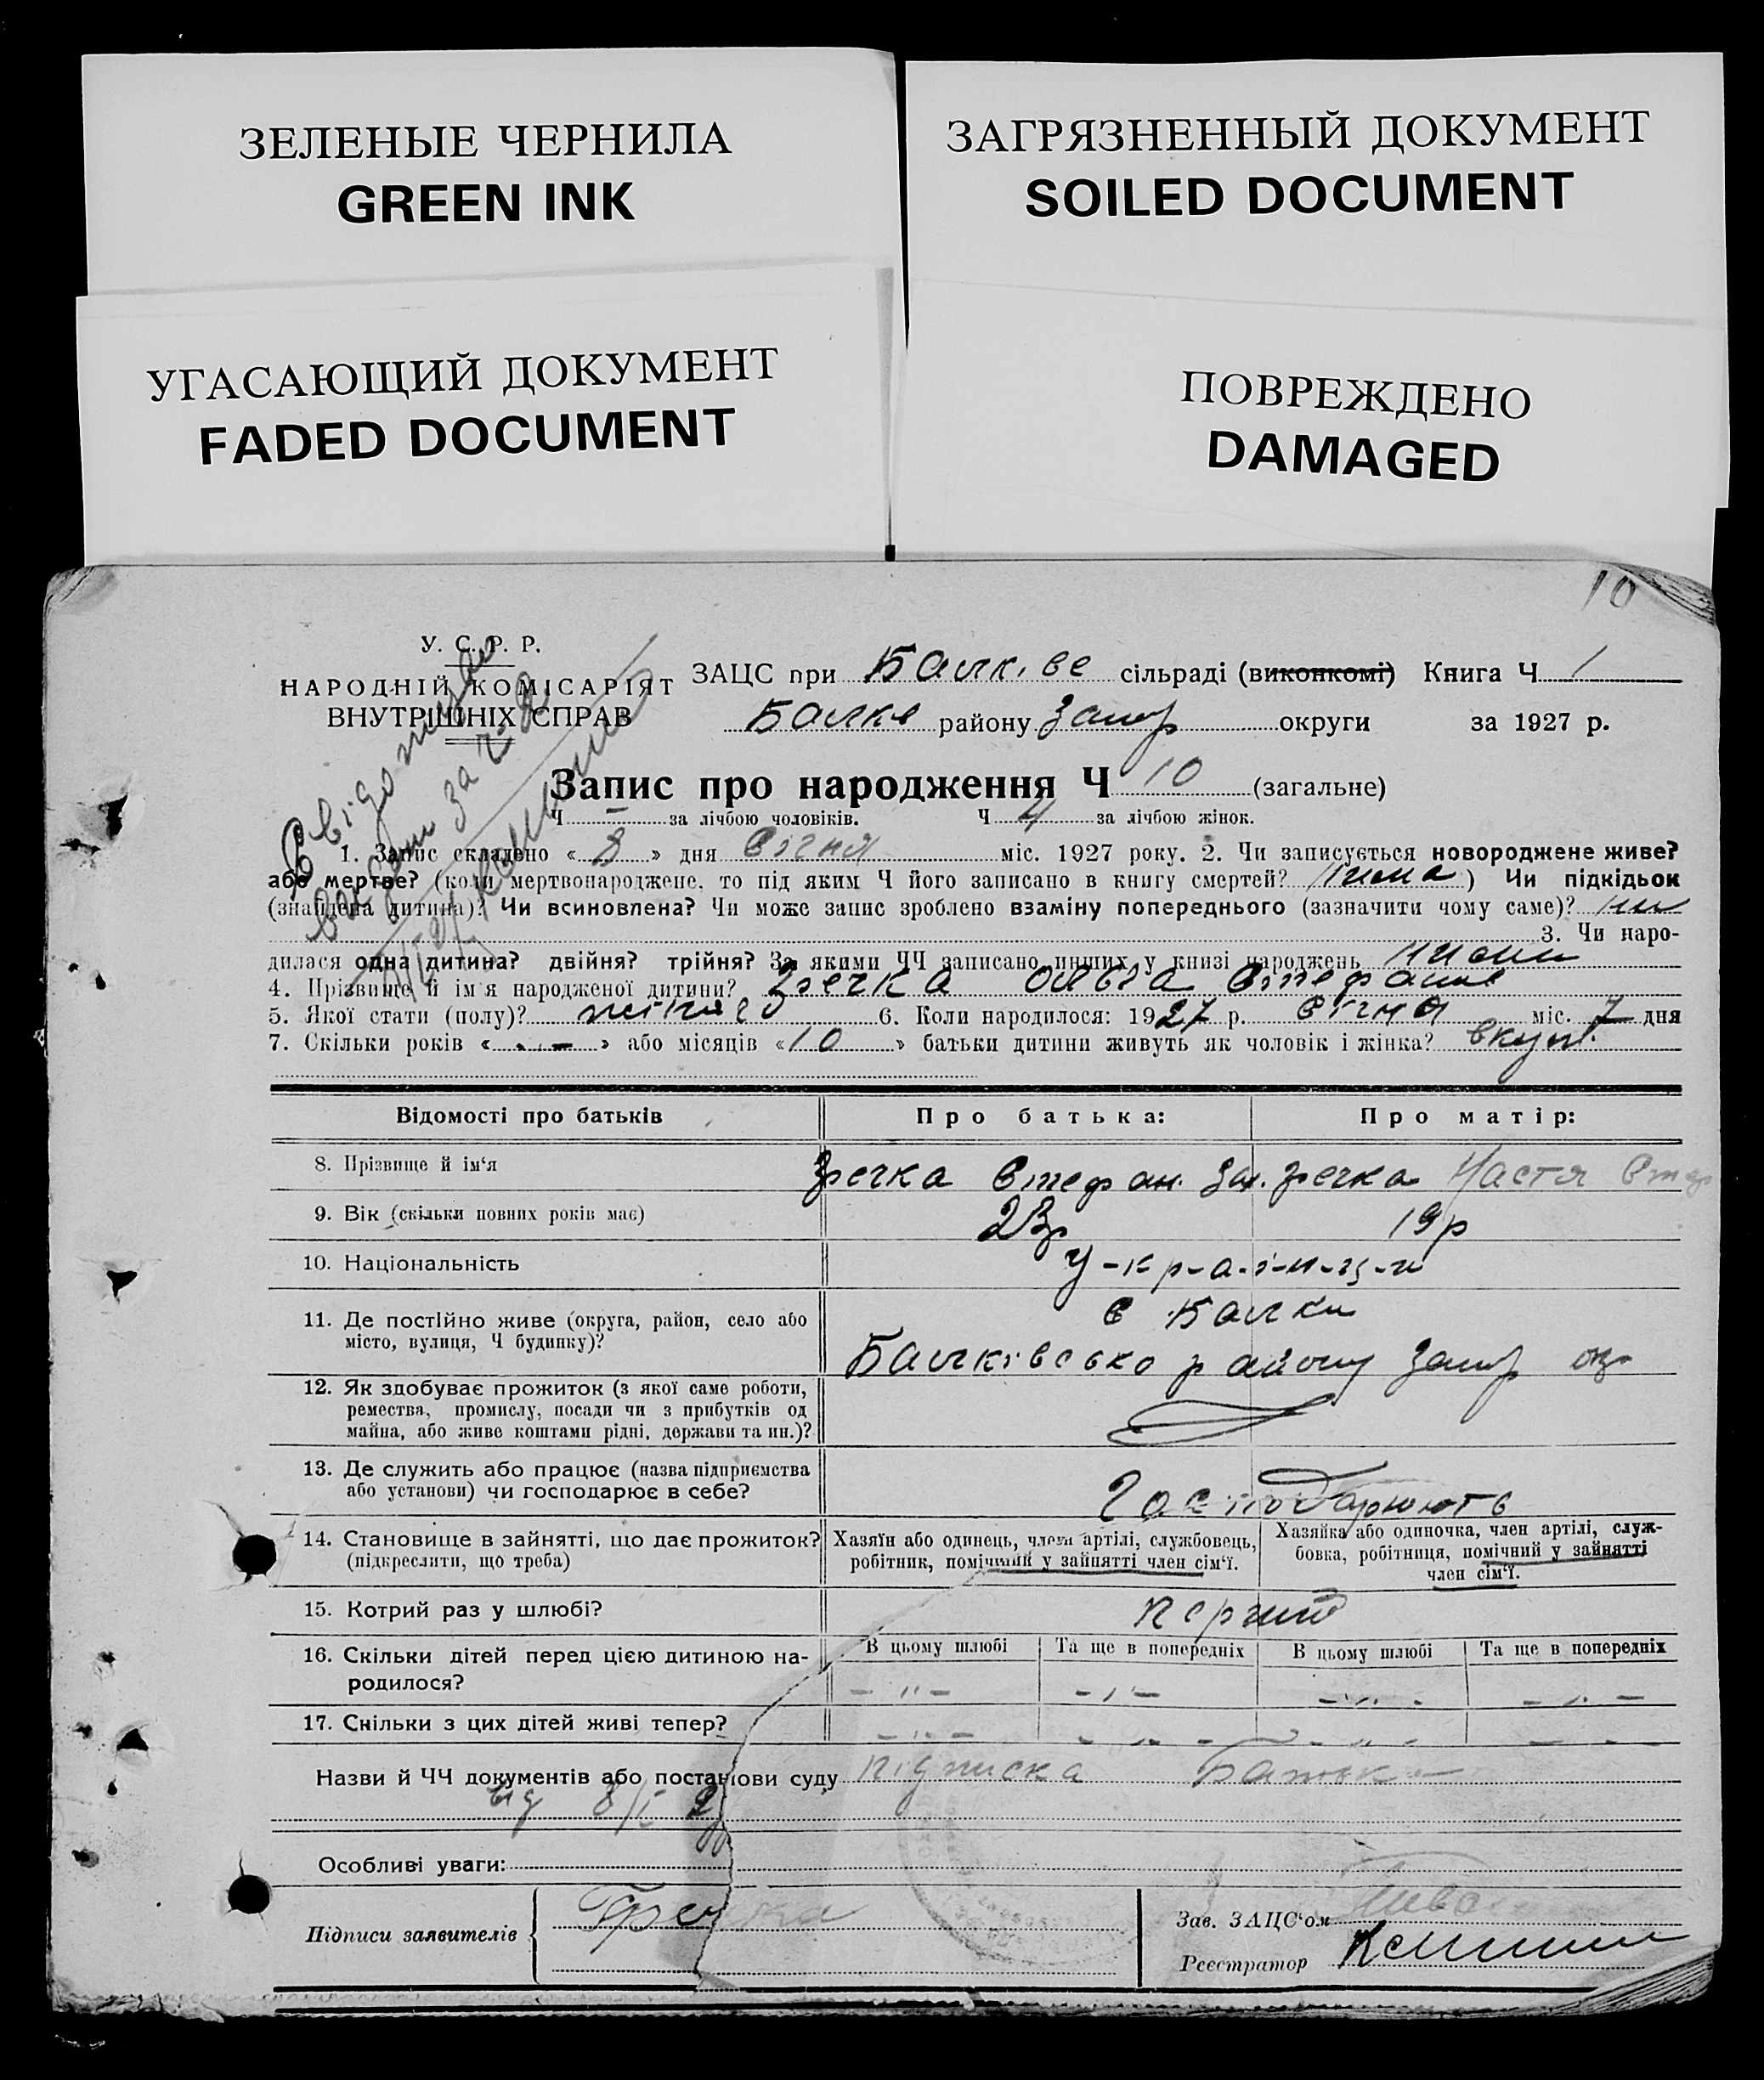 ЗЕЛЕНЫЕ ЧЕРНИЛА
GREEN INK
ЗАГРЯЗНЕННЫЙ ДОКУМЕНТ
SOILED DOCUMENT
УГАСАЮЩИЙ ДОКУМЕНТ
FADED DOCUMENT
ПОВРЕЖДЕНО
DAMAGED
10
У. С. Р. Р.
НАРОДНІЙ КОМІСАРІЯТ
ВНУТРІШНІХ СПРАВ
ЗАЦС при Балк. ве сільраді (виконкомі) Книга Ч 1
Балкв району Запр округи за 1927 р.
Запис про народження Ч 10 (загальне)
Ч — за лічбою чоловіків. Ч 4 за лічбою жінок.
1. Запис складено « 8 » дня Січня міс. 1927 року. 2. Чи записується новороджене живе?
або мертве? (коли мертвонароджене, то під яким Ч його записано в книгу смертей? ) Чи підкідьок
(знайдена дитина)? Чи всиновлена? Чи може запис зроблено взаміну попереднього (зазначити чому саме)?
3. Чи наро-
дилася одна дитина? двійня? трійня? За якими ЧЧ записано инших у книзі народжень
4. Прізвище й ім'я народженої дитини? Гречка Ольга Стефани
5. Якої стати (полу)? жіночо 6. Коли народилося: 1927 р. Січня міс. 7 дня
7. Скільки років « — » або місяців « 10 » батьки дитини живуть як чоловік і жінка? вкупі
Відомості про батьків
Про батька:
Про матір:
8. Прізвище й ім'я Гречка Стефан. Гречка Настя Стеф
9. Вік (скільки повних років має) 23р 19р
10. Національність У-к-р-а-ї-н-ц-и
11. Де постійно живе (округа, район, село або
місто, вулиця, Ч будинку)?
с Балки
Балківсько району Запр окр
12. Як здобуває прожиток (з якої саме роботи,
ремества, промислу, посади чи з прибутків од
майна, або живе коштами рідні, держави та ин.)?
13. Де служить або працює (назва підприємства
або установи) чи господарює в себе?
Господарюють
14. Становище в зайнятті, що дає прожиток?
(підкреслити, що треба)
Хазяїн або одинець, член артілі, службовець,
робітник, помічний у зайнятті член сім'ї.
Хазяйка або одиночка, член артілі, служ-
бовка, робітниця, помічний у зайнятті
член сім'ї.
15. Котрий раз у шлюбі? перший
16. Скільки дітей перед цією дитиною на-
родилося?
В цьому шлюбі Та ще в попередніх В цьому шлюбі Та ще в попередніх
17. Скільки з цих дітей живі тепер?
Назви й ЧЧ документів або постанови суду підписка батьк
від 8/I 27
Особливі уваги:
Підписи заявителів Гречка
Зав. ЗАЦС'ом
Реєстратор